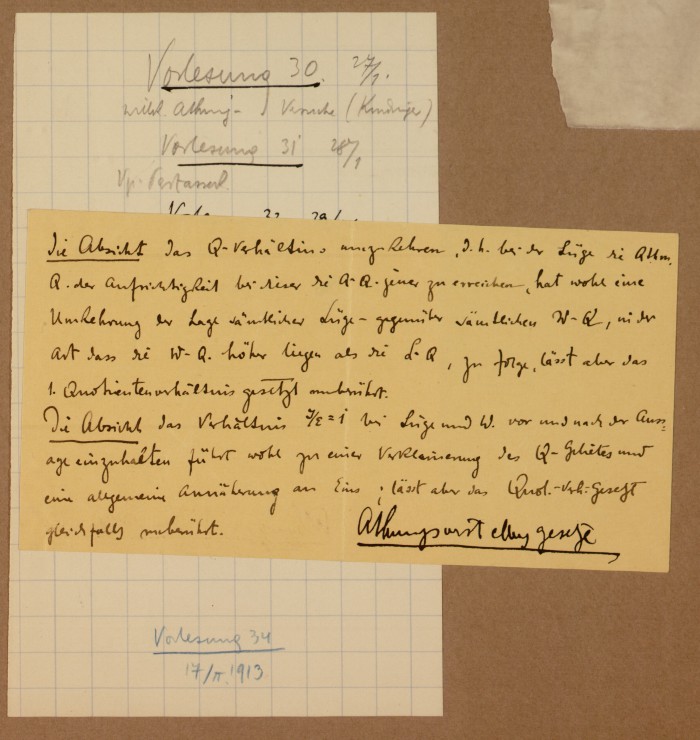 Vorlesung 30. 27/1.
willk. Athmg- Versuche (
Vorlesung 31 28/1
Vp.
Die Absicht das Q-Verhältnis umzukehren, d.h. bei der Lüge die Athm.
Q. der Aufrichtigkeit bei dieser die A-Q. jener zu erreichen, hat wohl eine
Umkehrung der Lage sämtlicher Lüge- gegenüber sämtlichen W-Q, in der
Art dass die W-Q. höher liegen als die L-Q, zu folge, lässt aber das
1. Quotientenverhältnisgesetzt unberührt.
Die Absicht das Verhältnis J/E = 1 bei Lüge und W. vor und nach der Auss-
age einzuhalten führt wohl zu einer Verkleinerung des Q-Gebietes und
eine allgemeine Annäherung an Eins; lässt aber das Quot.-Verh.-Gesetzt
gleichfalls unberührt.
Athmungsvorstellungsgesetze
Vorlesung 34
17/II.1913